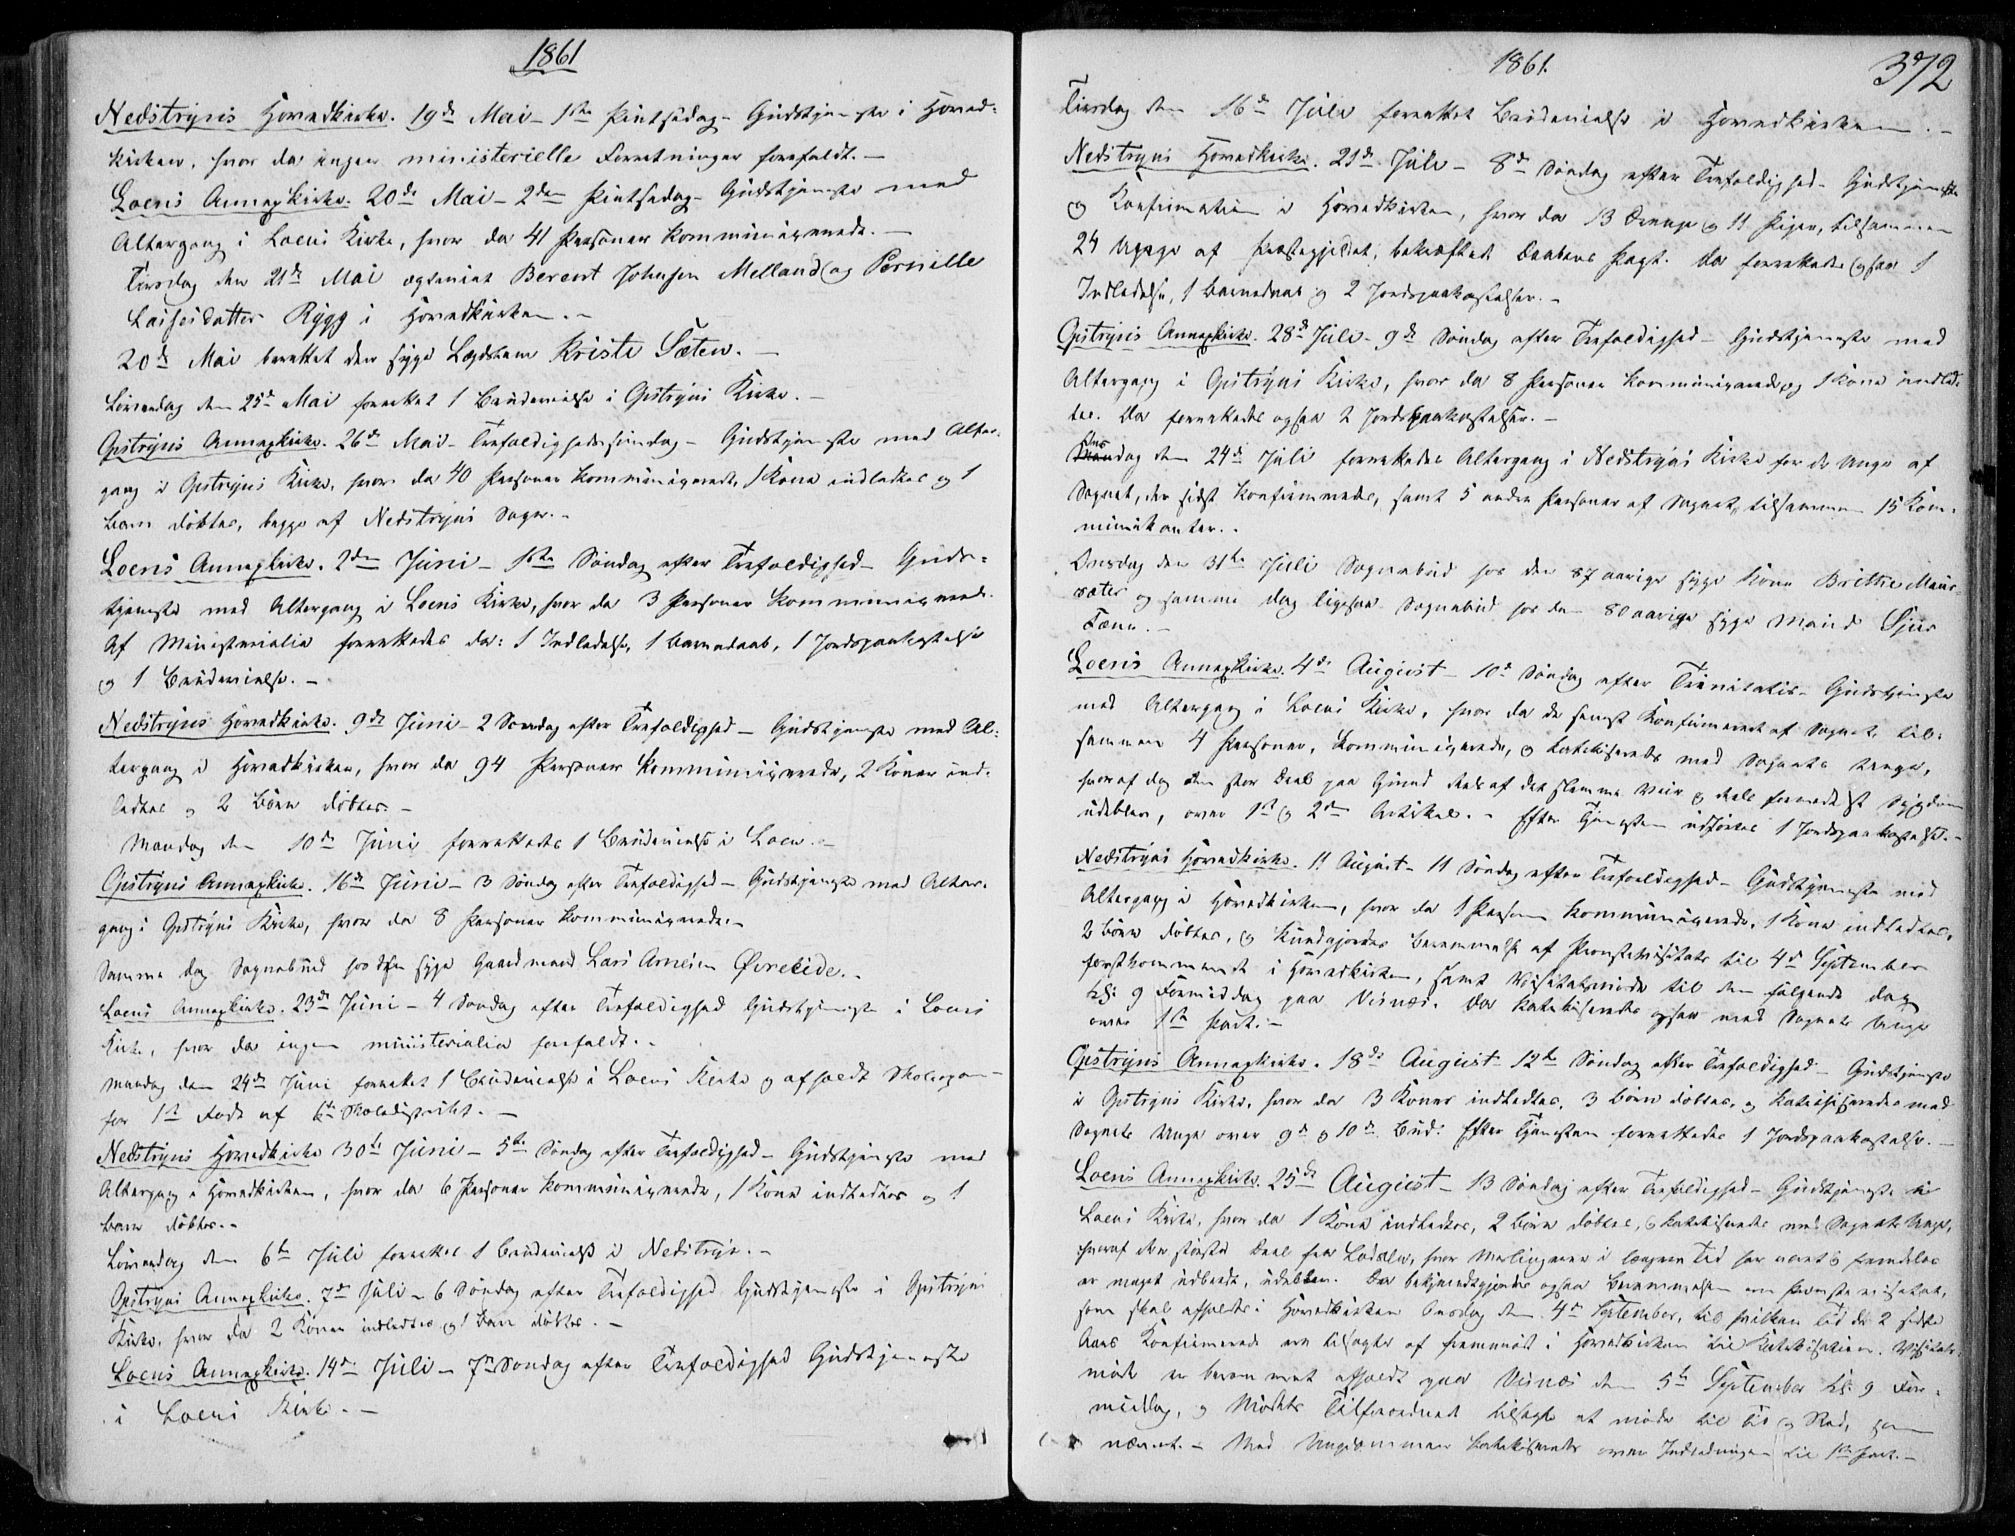 1861
Nedstryns Hovedkirke. 19de Mai – 1ste Pintsedag – Gudstjeneste i Hoved-
kirken, hvor da ingen ministerielle Forretninger forefaldt. –
Loens Annexkirke. 20de Mai – 2den Pintsedag – Gudstjeneste med
Altergang i Loens Kirke, hvor da 41 Personer kommunicerede. –
Tirsdag den 21de Mai ægteviet Berent Johnsen Melland og Pernille
Lassesdatter Rygg i Hovedkirken. –
20de Mai berettet den syge Lægdslem Kristi Sæten. –
Løverdag den 25de Mai forrettet 1 Brudevielse i Opstryns Kirke. –
Opstryns Annexkirke. 26de Mai – Trefoldighedssøndag – Gudstjeneste med Alter-
gang i Opstryns Kirke, hvor da 40 Personer kommunicerede, 1 Kone indledtes og 1
Barn døbtes, begge af Nedstryns Sogn. –
Loens Annexkirke. 2den Juni – 1ste Søndag efter Trefoldighed – Guds-
tjeneste med Altergang i Loens Kirke, hvor da 3 Personer kommunicerede.
Af Ministerialia forrettedes da: 1 Indledelse, 1 Barnedaab, 1 Jordspaakastelse
og 1 Brudevielse. –
Nedstryns Hovedkirke. 9de Juni – 2 Søndag efter Trefoldighed – Gudstjeneste med Al-
tergang i Hovedkirken, hvor da 94 Personer kommunicerede, 2 Koner ind-
ledtes og 2 Børn døbtes. –
Mandag den 10de Juni forrettedes 1 Brudevielse i Loen. –
Opstryns Annexkirke. 16de Juni – 3 Søndag efter Trefoldighed – Gudstjeneste med Alter-
gang i Opstryns Kirke, hvor da 8 Personer kommunicerede. –
Samme Dag Sognebud hos den syge Gaardmand Lars Arnesen Øvreeide. –
Loens Annexkirke. 23de Juni – 4 Søndag efter Trefoldighed Gudstjeneste i Loens
Kirke, hvor da ingen ministerialia forefaldt. –
Mandag den 24de Juni forrettet 1 Brudevielse i Loens Kirke og afholdt
for 1ste af 6te Skoledistrikt. –
Nedstryns Hovedkirke 30te Juni – 5te Søndag efter Trefoldighed – Gudstjeneste med
Altergang i Hovedkirken, hvor da 6 Personer kommunicerede, 1 Kone indledtes og 1
Barn døbtes. –
Løverdag den 6te Juli forrettet 1 Brudevielse i Nedstryn. –
Opstryns Annexkirke. 7de Juli – 6 Søndag efter Trefoldighed Gudstjeneste i Opstryns
Kirke, hvor da 2 Koner indledtes og 1 Barn døbtes. –
Loens Annexkirke. 14de Juli – 7de Søndag efter Trefoldighed Gudstjeneste
i Loens Kirke. –
1861.
372
Tirsdag den 16de Juli forrettet Brudevielse i Hovedkirken. –
Nedstryns Hovedkirke. 21de Juli – 8de Søndag efter Trefoldighed – Gudstjeneste
og Konfirmation i Hovedkirken, hvor da 13 Drenge og 11 Piger, tilsammen
24 Unge af Præstegjeldet, bekræftede Daabens Pagt. Da forrettedes ogsaa 1
Indledelse, 1 Barnedaab og 2 Jordspaakastelser. –
Opstryns Annexkirke. 28de Juli – 9de Søndag efter Trefoldighed – Gudstjeneste med
Altergang i Opstryns Kirke, hvor da 8 Personer kommunicerede og 1 Kone indled-
tes. Da forrettedes ogsaa 2 Jordspaakastelser. –
Onsdag den 24de Juli forrettedes Altergang i Nedstryns Kirke for de Unge af
Sognet, der sidst konfirmeredes, samt 5 andre Personer af Sognet, tilsammen 15 Kom-
munikanter. –
Onsdag den 31te Juli Sognebud hos den 87 aarige syge Kone Brithe Maur-
sæter og samme Dag ligesaa Sognebud hos den 80 aarige syge Mand Sjur
Tænn. –
Loens Annexkirke. 4de August – 10de Søndag efter Trinitatis – Gudstjeneste
med Altergang i Loens Kirke, hvor da de senest Konfirmerede af Sognet, til-
sammen 4 Personer, kommunicerede, og katekiseredes med Sognets Unge,
hvoraf dog en stor Deel paa Grund deels af det slemme Veir og deels formedelst Sygdom
udebleve, over 1ste og 2den Artikel. – Efter Tjenesten udførtes 1 Jordspaakastelse. –
Nedstryns Hovedkirke. 11 August – 11 Søndag efter Trefoldighed – Gudstjeneste med
Altergang i Hovedkirken, hvor da 1 Person kommunicerede, 1 Kone indledtes,
2 Børn døbtes, og kundgjordes Berammelse af Provstevisitats til 4de September
førstkommende i Hovedkirken, samt Visitatsmøde til den følgende Dag
Kl. 9 Formiddag paa Visnes. Da katekiseredes ogsaa med Sognets Unge
over 1ste Part. –
Opstryns Annexkirke. 18de August 12te Søndag efter Trefoldighed – Gudstjeneste
i Opstryns Kirke, hvor da 3 Koner indledtes, 3 Børn døbtes, og katekiseredes med
Sognets Unge over 9de og 10de Bud. Efter Tjenesten forrettedes 1 Jordspaakastelse. –
Loens Annexkirke. 25de August – 13 Søndag efter Trefoldighed – Gudstjeneste i
Loens Kirke, hvor da 1 Kone indledtes, 2 Børn døbtes, og katekiseredes med Sognets Unge,
hvoraf den største Deel fra Lodalen, hvor Meslingerne i længere Tid har været og fremdeles
er meget udbredt, udebleve. Da bekjendtgjordes ogsaa Berammelsen om Provstevisitats,
som skal afholdes i Hovedkirken Onsdag den 4de September, til hvilken Tid de 2 sidste
Aars Konfirmerede ere tilsagte at fremmøde i Hovedkirken til Katekisation. Visitats-
møde er berammet afholdt paa Visnes den 5te September Kl. 9 For-
middag, og Mødets Tilforordnede tilsagte at møde til Tid og Sted, som
nævnt. – Med Ungdommen katekiseredes over Indledningen til 1ste Part. –